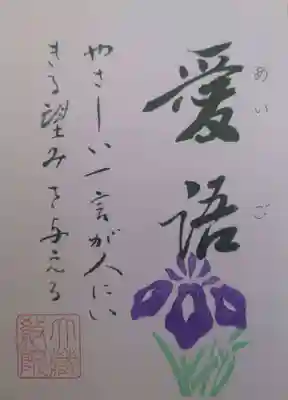 愛語
めいご
やさしい一言が人にい
きる望みを与える